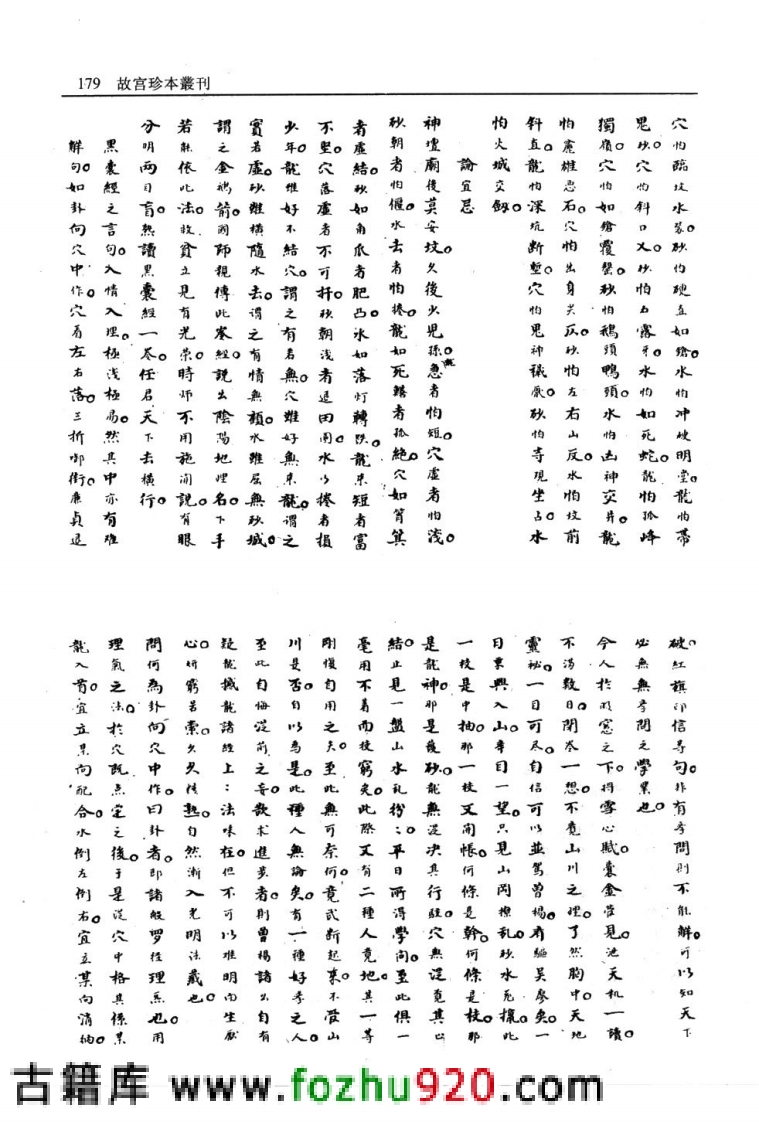 179 故宮珍本叢刊
穴怕臨坟水。砂怕硬直如鎗。水怕冲破明堂。龍怕帶
鬼砂。穴怕斜口义。砂怕石露牙。水怕如死蛇。龍怕孤峰
獨嶺。穴怕如鎗覆磬。砂怕鵝頭鴨頭。水怕凶神交井。龍
怕麄雄惡石。穴怕出身尖仄。砂怕左右山反。水怕坟前
斜直。龍怕深坑断塹。穴怕鬼神。砂怕寺現坐占。水
怕火城交劔。
論宜忌
神壇廟後莫安坟。久後少見孫。急者怕短。穴虛者怕淺。
砂朝者怕偃。水去者怕捲。龍如死鱔者孤絕。穴如筲箕
者虛結。砂如角爪者肥凸。氷如落灯轉。龍来短者富
不堅。穴落盧者不可扦。砂朝淺者退田圍。水以捲者損
少年。龍雖好不結穴。謂之有名無穴。雖好無来龍。謂之
實若虛。砂雖橫隨水去。謂之有情無顏。水雖屈無砂城。
謂之金前。國師親傳此峯經。說出陰陽地理名。下手
若能依此法。救貧立見有光荣。時師不用施閑說。有眼
分明两目盲。熟讀黑囊經一卷。任君天下去橫行。
黑囊經之言句。入情入理。極浅極易。然其中亦有难
解句。如卦向穴中作。穴看左右落。三折御街。廉貞退
破。紅旗印信等句。非有考問則不能解。可以知天下
必無無考問之學業也。
今人於明窓之下。将雪心賦。囊金萤見。池天机一讀。
不満数日。閉卷一想。不覚山川之理。了然胸中。天地
靈秘。一目可尽。自信可以並駕曾楊。看驅吴廖矣。一
日乘興入山。擧目一望。只見山岡撩乱。砂水无攘。此
一枝是中抽。那一枝又開帳。何條是幹。何條是枝。那
是龍神。那是護砂。龍無從决其行駐。穴無從覓其出
結。止見一盤山水乱扮扮。平日所得學问。至此俱一
毫用不着。而技窮矣。此際又有二種人覓地。其一等
剛愎自用之夫。至此無可奈何。竟武断起来。不管山
川是否。自以為是。此種人無論矣。有一種好考之人。
至此自悔從前之妄。欲求進業者。則曾楊諸公自有
疑龍撼龍諸經上上法味在。但不可以难明而生厭
心。研窮苦索。久久後熟。自然漸入光明法藏也。
問何為卦向穴中作。曰卦者。即諸般罗经理系也。用
理氣之法。於穴既点定之後。于是從穴中格其係某
龍入首。宜立某向配合。水倒左倒右。宜立某向消納。
古籍库 www.fozhu920.com